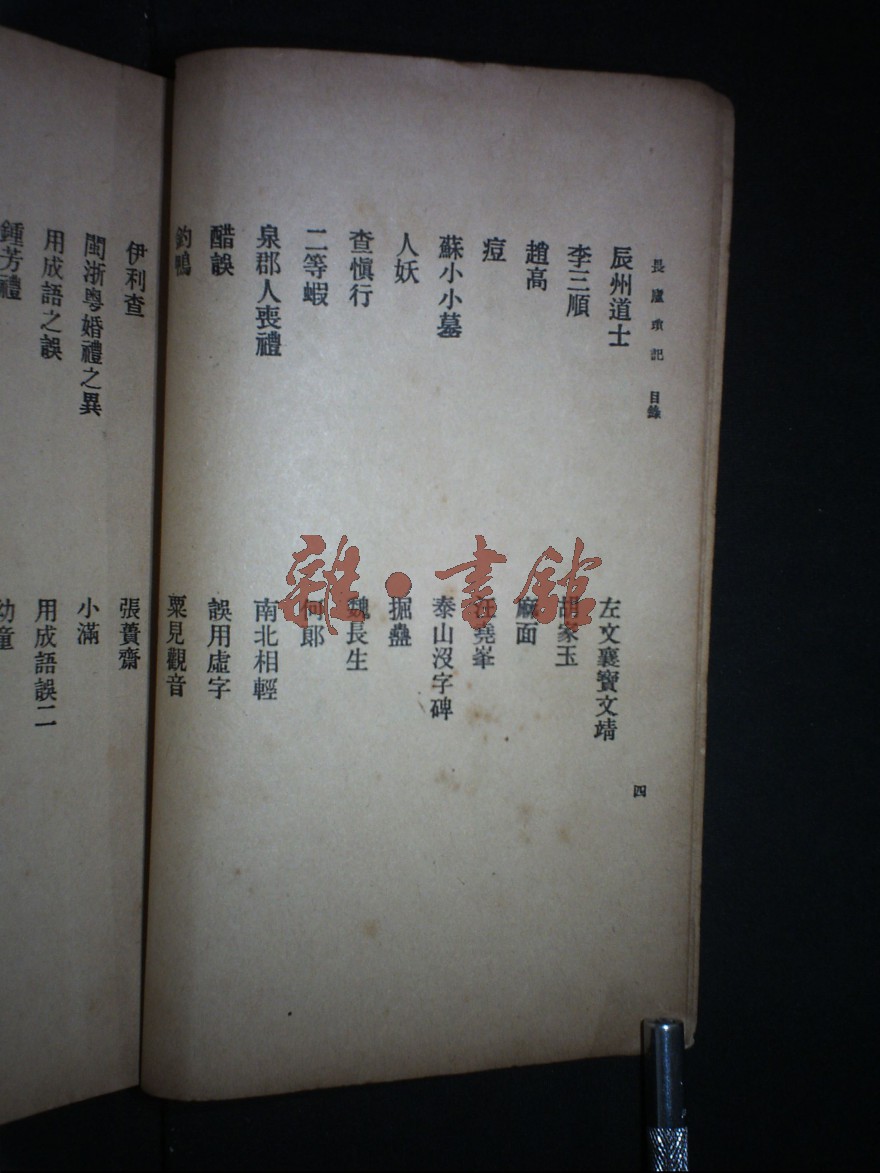 畏廬瑣記 目錄 四
辰州道士 左文襄寶文靖
李三順 胡家玉
趙高 麻面
痘 汪堯峯
蘇小小墓 泰山沒字碑
人妖 掘蠱
查愼行 魏長生
二等蝦 何郎
泉郡人喪禮 南北相輕
醋誤 誤用虛字
釣鴨 見觀音
伊利查 張蕢齋
閩浙粵婚禮之異 小滿
用成語之誤 用成語誤二
鍾芳禮 幼童
雜·書館